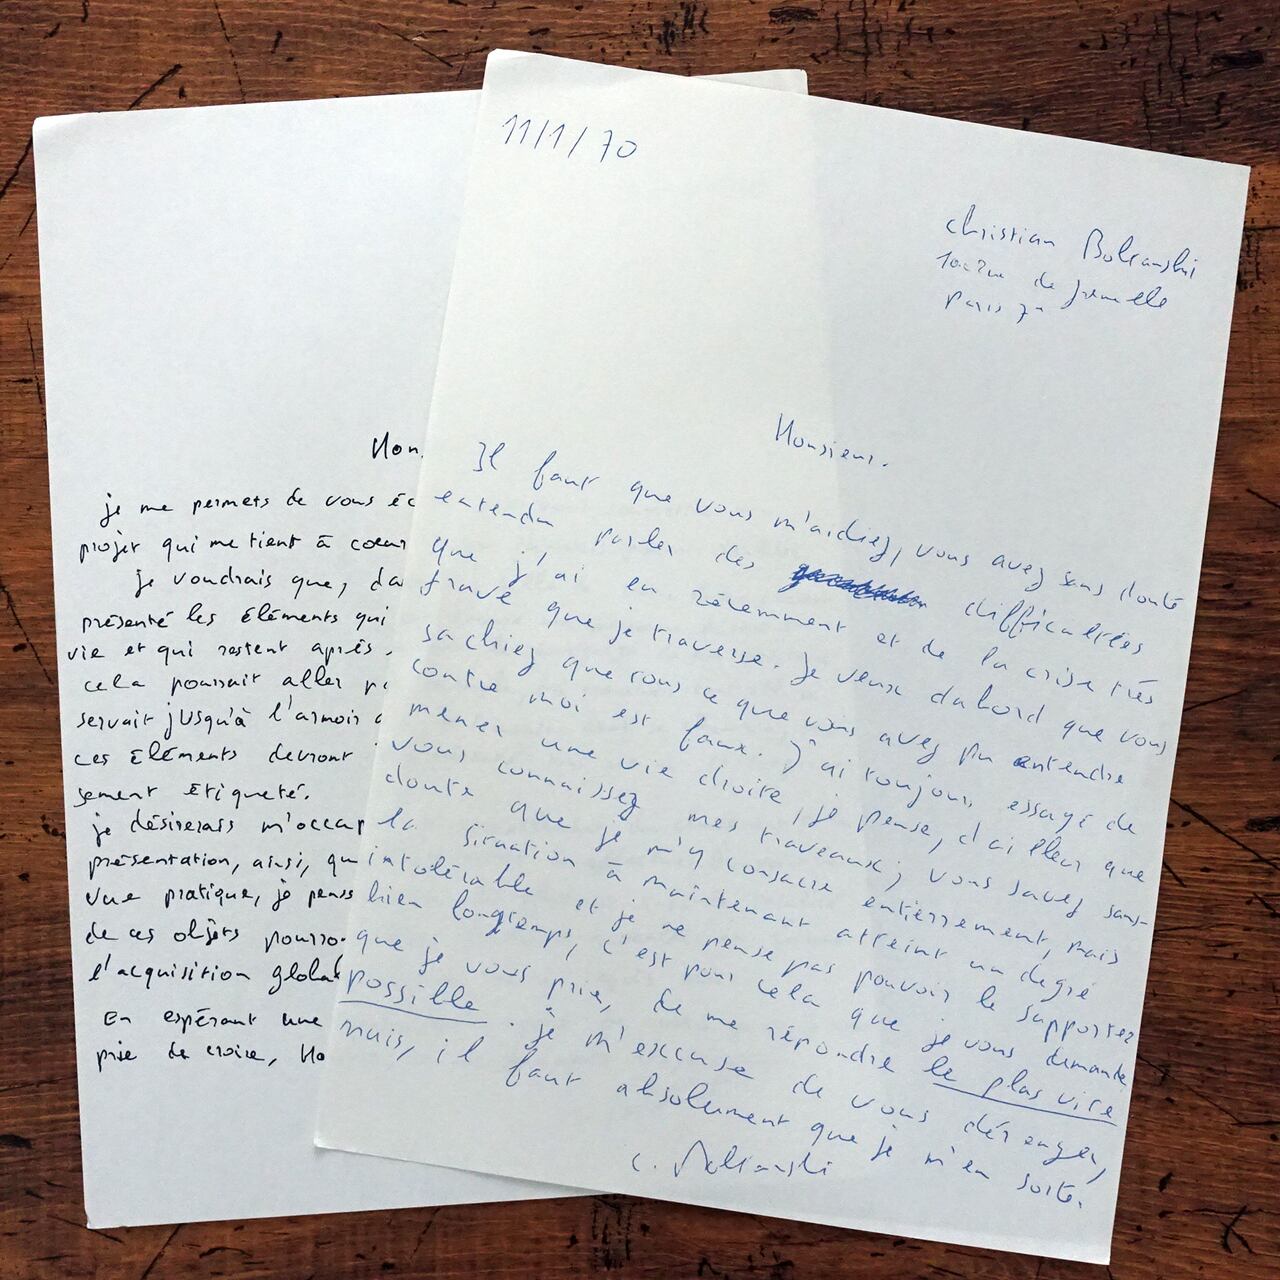 Mon
je me permets de vous éc
projet qui me tient à coeur
je voudrais que, da
présenté les éléments qui
vie et qui restent après
cela pourrait aller
servait jusqu'à l'armoir
ces éléments devront
sement étiqueté.
je désirerais m'occup
présentation, ainsi, qu
vue pratique, je pens
de ces objets pourro
l'acquisition global
En espérant une
prie de croire, Mo
11/1/70
Christian Boltanski
rue de grenelle
Paris 7e
Monsieur.
Il faut que vous m'aidiez, vous avez sans douté
entendu parler des difficultées
que j'ai eu récemment et de la crise très
grave que je traverse. Je veux dabord que vous
sachiez que tous ce que vous avez pu entendre
contre moi est faux. J'ai toujours essayé de
mener une vie droite, je pense, d'ailleur que
vous connaissez mes traveaux; vous savez sans-
doute que je m'y consacre entièrrement, mais
la situation à maintenant atteint un degré
intolérable et je ne pense pas pouvoir le supporter
bien longtemps, c'est pour cela que je vous demande
que je vous prie, de me répondre le plus vite
possible. je m'excuse de vous déranger,
mais, il faut absolument que je m'en sorte.
C. Boltanski